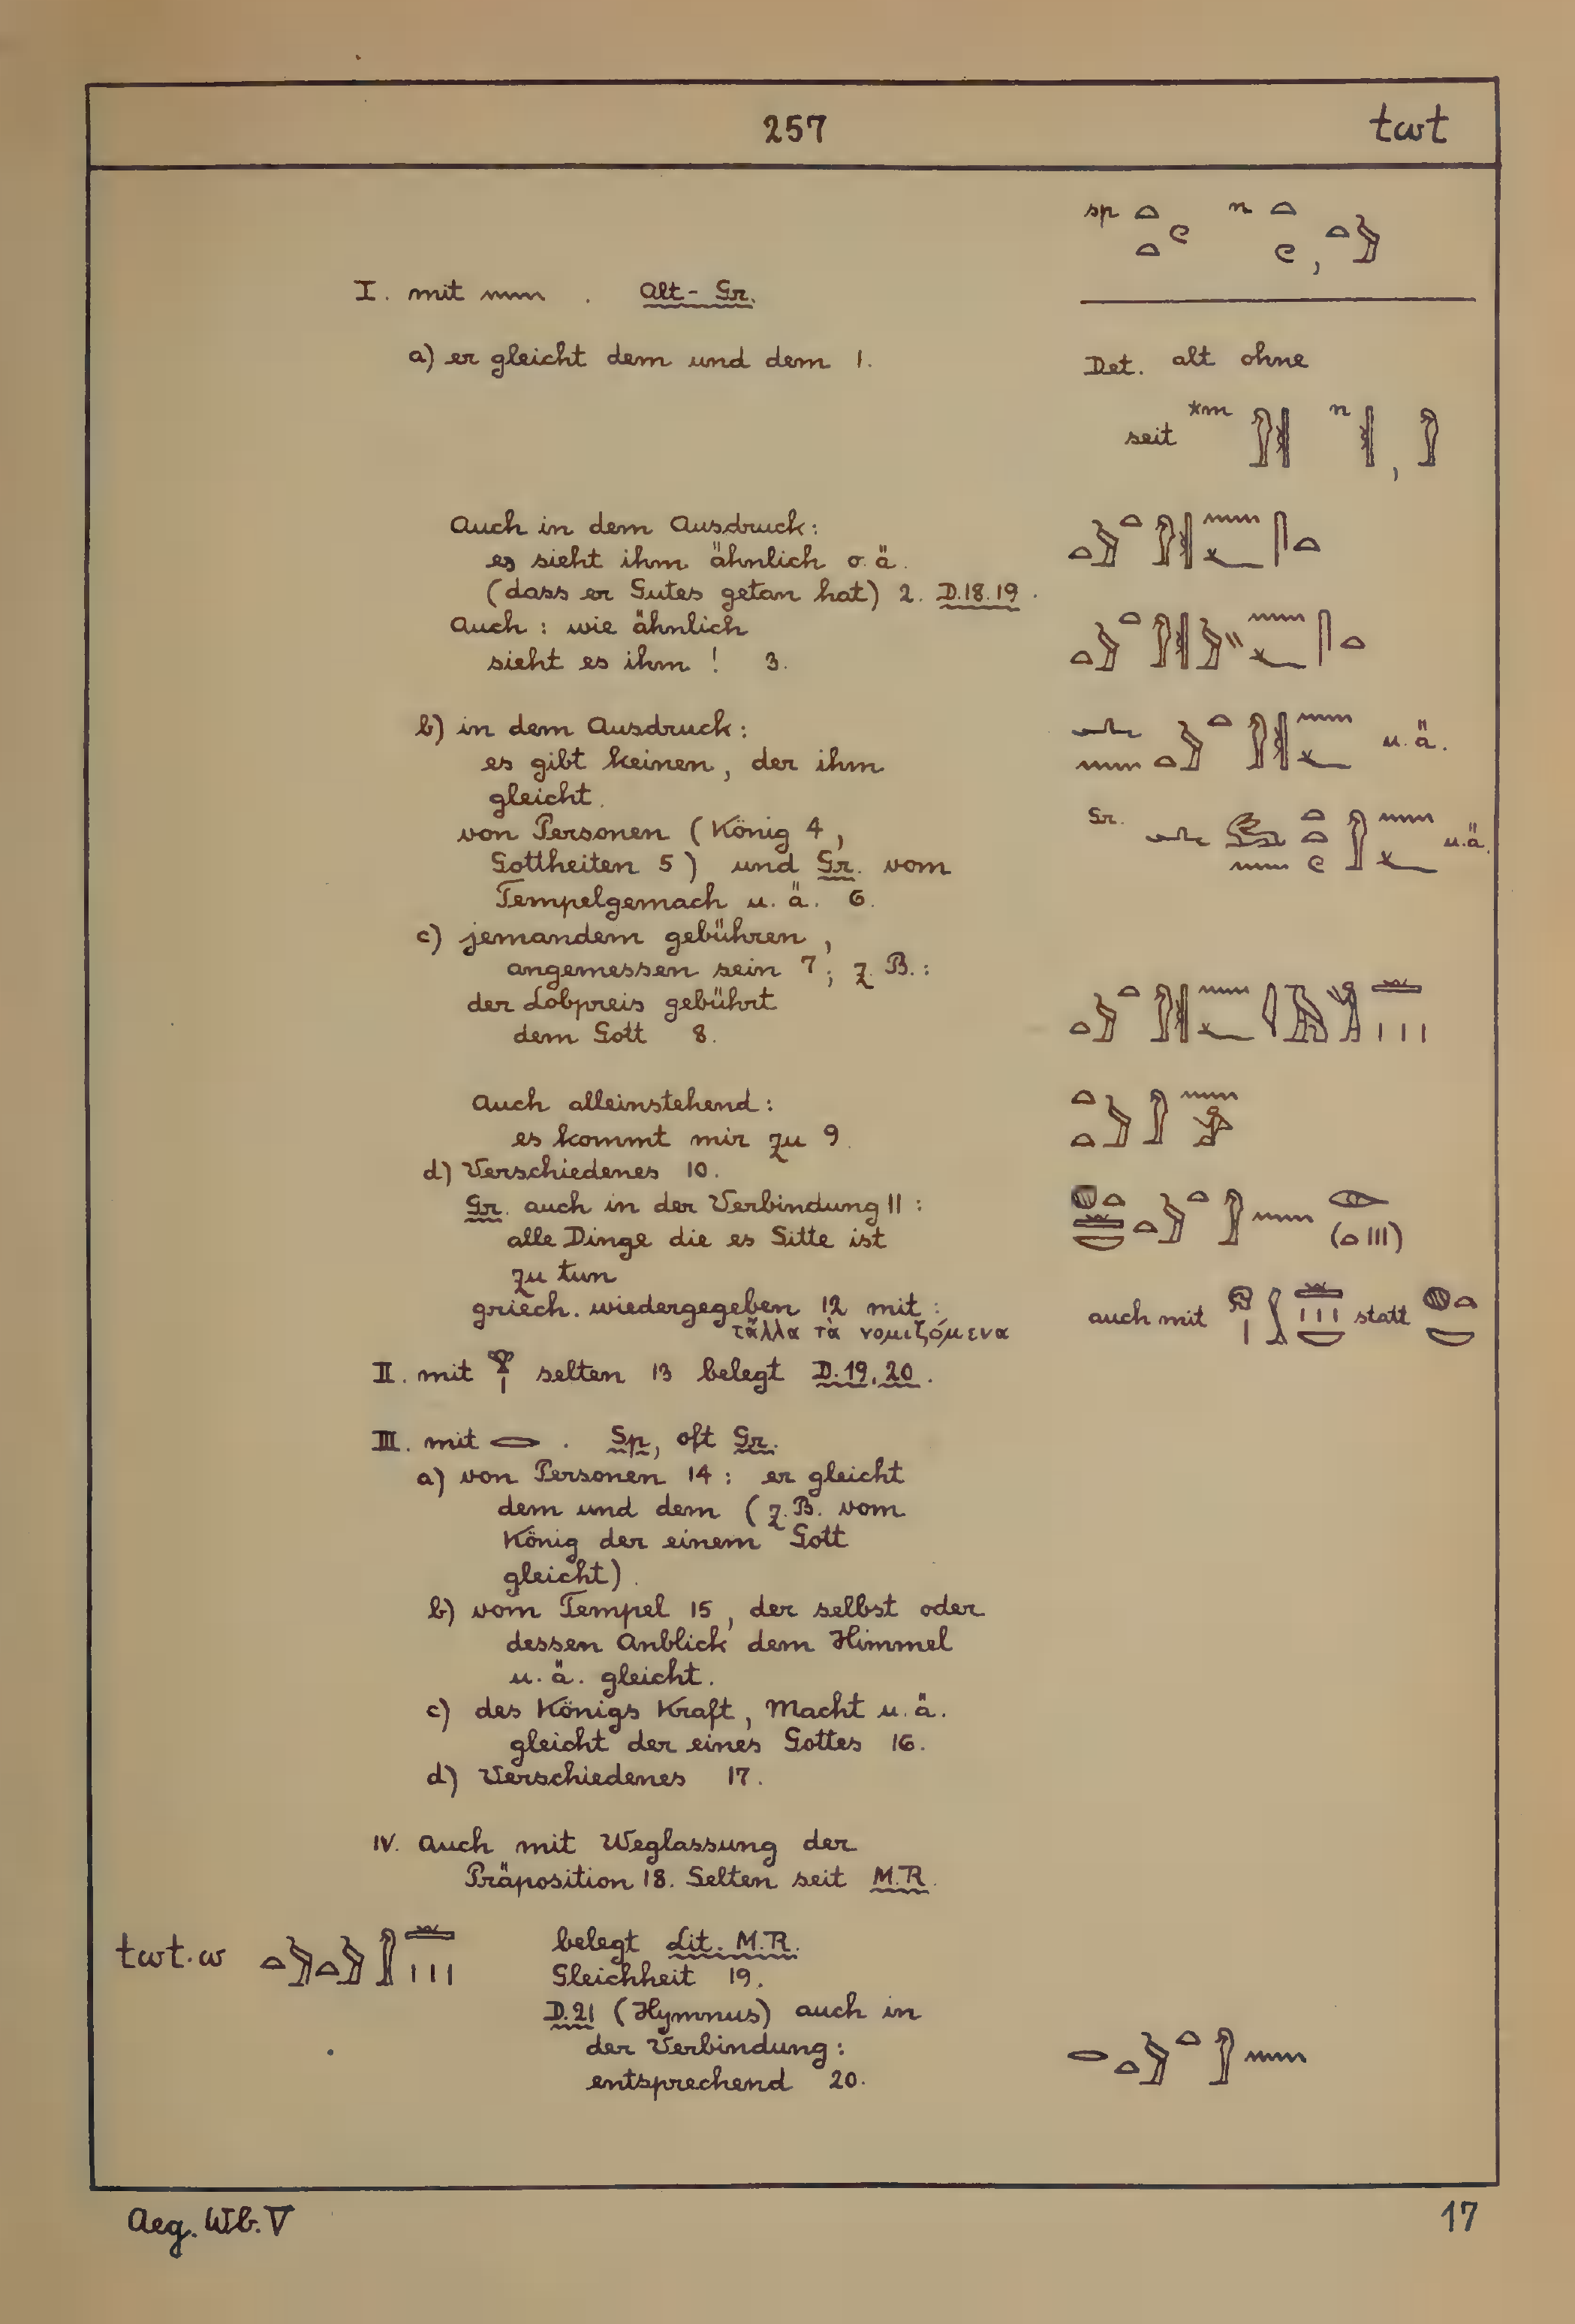 257 twt
sp n
I. mit 𓈖 . Alt - Gr.
a) er gleicht dem und dem 1.
Det. alt ohne
seit *m n ,
Auch in dem Ausdruck:
es sieht ihm ähnlich o. ä.
(dass er Gutes getan hat) 2. D.18.19.
Auch : wie ähnlich
sieht es ihm ! 3.
b) in dem Ausdruck:
es gibt keinen, der ihm
gleicht.
u. ä.
von Personen (König 4,
Gottheiten 5) und Gr. vom
Tempelgemach u. ä. 6.
Gr. u.ä.
c) jemandem gebühren,
angemessen sein 7; z. B.:
der Lobpreis gebührt
dem Gott 8.
Auch alleinstehend:
es kommt mir zu 9.
d) Verschiedenes 10.
Gr. auch in der Verbindung 11:
alle Dinge die es Sitte ist
zu tun
griech. wiedergegeben 12 mit:
τἄλλα τὰ νομιζόμενα
auch mit statt
II. mit 𓁷𓏤 selten 13 belegt D.19.20.
III. mit 𓂋 . Sp, oft Gr.
a) von Personen 14: er gleicht
dem und dem (z.B. vom
König der einem Gott
gleicht).
b) vom Tempel 15, der selbst oder
dessen Anblick dem Himmel
u. ä. gleicht.
c) des Königs Kraft, Macht u. ä.
gleicht der eines Gottes 16.
d) Verschiedenes 17.
IV. Auch mit Weglassung der
Präposition 18. Selten seit M.R.
twt.w belegt Lit. M.R.
Gleichheit 19.
D.21 (Hymnus) auch in
der Verbindung:
entsprechend 20.
Aeg. Wb. V 17